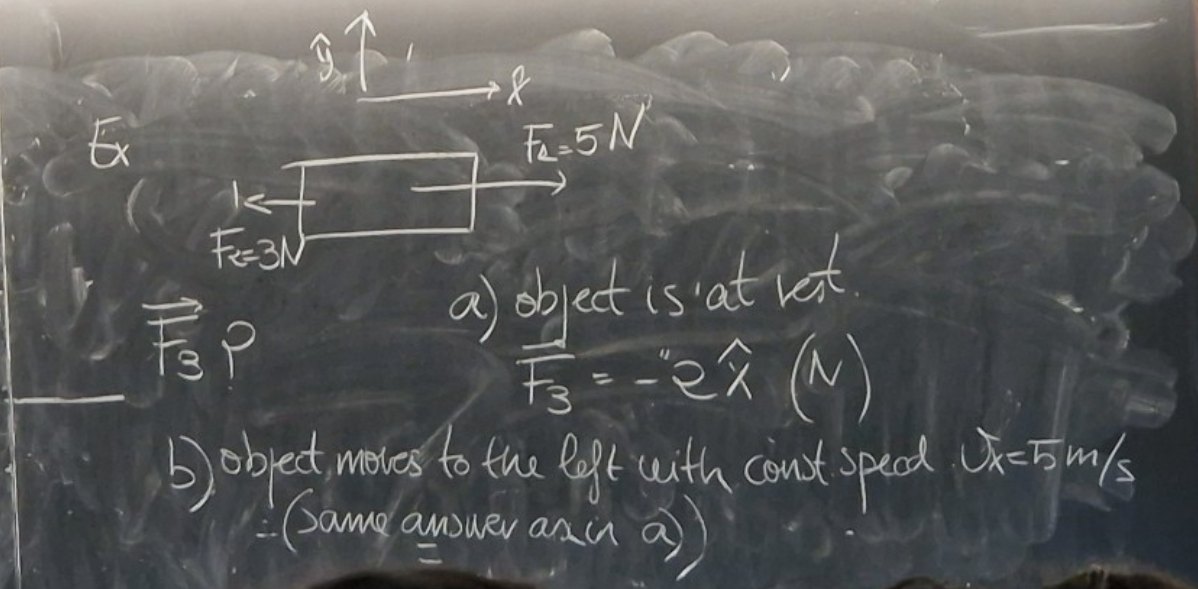 ŷ
x̂
Ex
F₁=5N
F₂=3N
F⃗₃ ?
a) object is at rest.
F⃗₃ = -2x̂ (N)
b) object moves to the left with const. speed vₓ=5m/s
(same answer as in a))